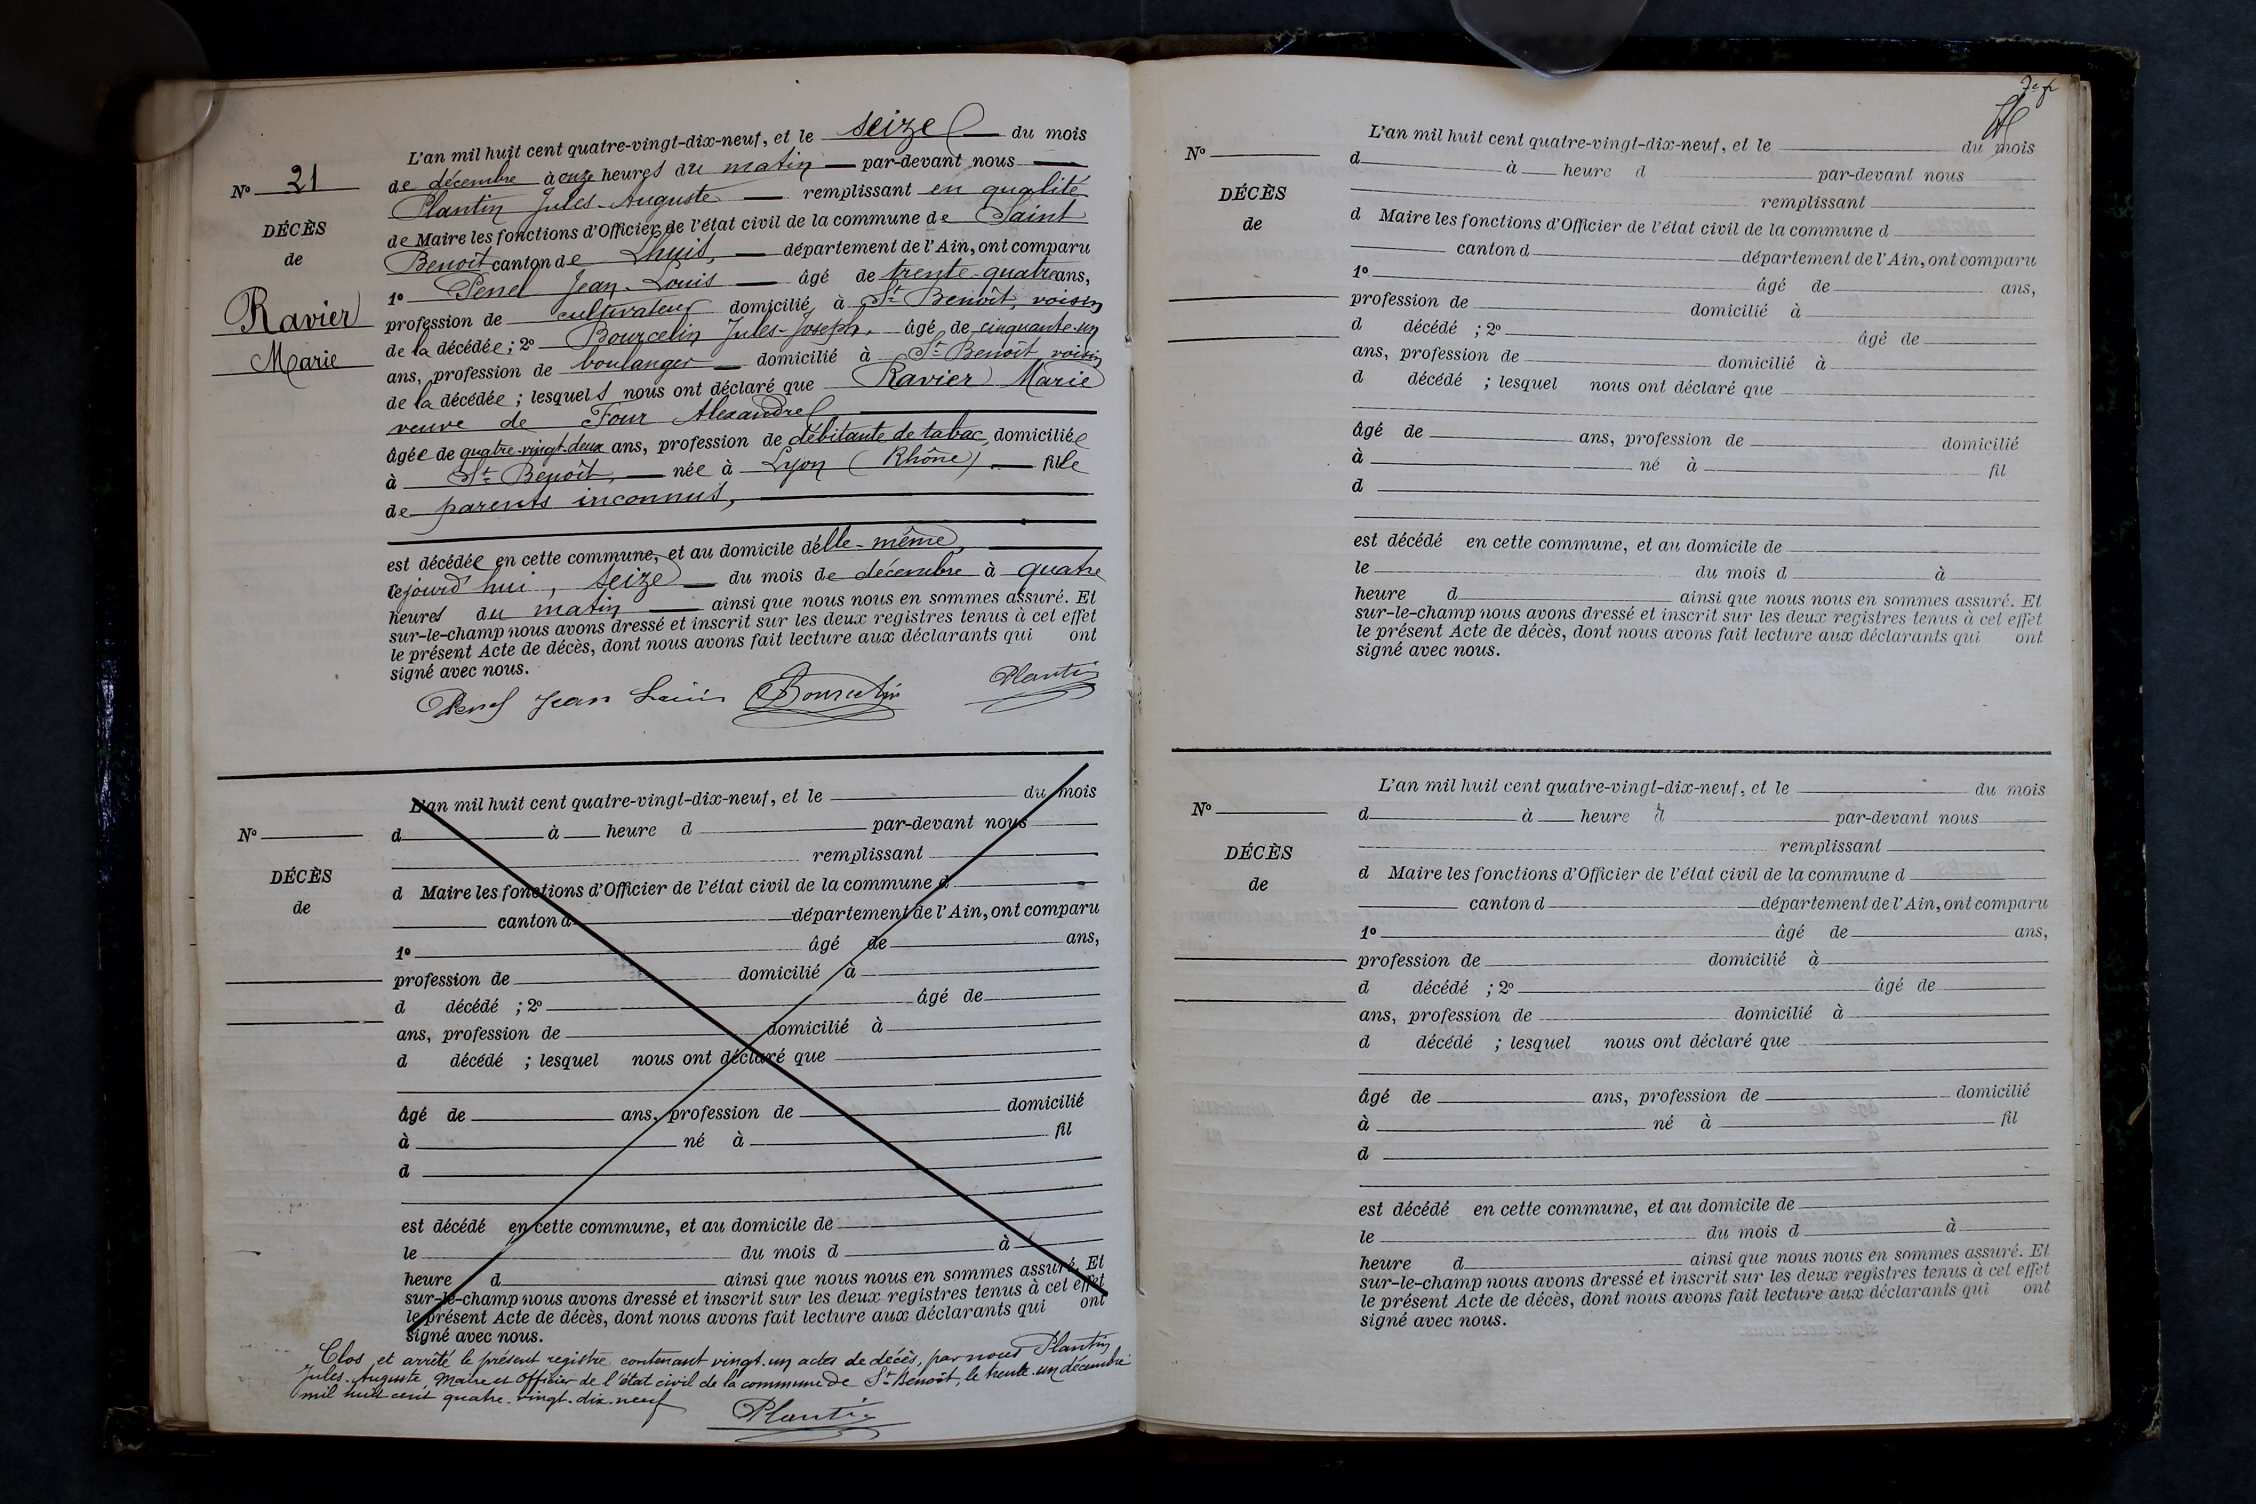 L'an mil huit cent quatre-vingt-dix-neuf, et le seize du mois
N° 21
de décembre à onze heures du matin par-devant nous
Plantin Jules-Auguste remplissant en qualité
DÉCÈS
de Maire les fonctions d'Officier de l'état civil de la commune de Saint
de
Benoît canton de Lhuis, département de l'Ain, ont comparu
1° Penel Jean-Louis âgé de trente-quatre ans,
Ravier
profession de cultivateur domicilié à St Benoît, voisin
de la décédée ; 2° Bourcelin Jules-Joseph, âgé de cinquante-un
Marie
ans, profession de boulanger domicilié à St Benoît, voisin
de la décédée ; lesquels nous ont déclaré que Ravier Marie
veuve de Four Alexandre
âgée de quatre-vingt-deux ans, profession de débitante de tabac, domiciliée
à St Benoît, née à Lyon (Rhône) fille
de parents inconnus,
est décédée en cette commune, et au domicile d'elle-même,
lejourd'hui, seize du mois de décembre à quatre
heures du matin ainsi que nous nous en sommes assuré. Et
sur-le-champ nous avons dressé et inscrit sur les deux registres tenus à cet effet
le présent Acte de décès, dont nous avons fait lecture aux déclarants qui ont
signé avec nous.
Penel Jean Louis Bourcelin Plantin
L'an mil huit cent quatre-vingt-dix-neuf, et le du mois
N°
d à heure d par-devant nous
remplissant
DÉCÈS
d Maire les fonctions d'Officier de l'état civil de la commune d
de
canton d département de l'Ain, ont comparu
1° âgé de ans,
profession de domicilié à
d décédé ; 2° âgé de
ans, profession de domicilié à
d décédé ; lesquel nous ont déclaré que
âgé de ans, profession de domicilié
à né à fil
d
est décédé en cette commune, et au domicile de
le du mois d à
heure d ainsi que nous nous en sommes assuré. Et
sur-le-champ nous avons dressé et inscrit sur les deux registres tenus à cet effet
le présent Acte de décès, dont nous avons fait lecture aux déclarants qui ont
signé avec nous.
Clos et arrêté le présent registre contenant vingt-un actes de décès, par nous Plantin
Jules-Auguste, Maire et Officier de l'état civil de la commune de St Benoît, le trente-un décembre
mil huit cent quatre-vingt-dix-neuf
Plantin
L'an mil huit cent quatre-vingt-dix-neuf, et le du mois
N°
d à heure d par-devant nous
remplissant
DÉCÈS
d Maire les fonctions d'Officier de l'état civil de la commune d
de
canton d département de l'Ain, ont comparu
1° âgé de ans,
profession de domicilié à
d décédé ; 2° âgé de
ans, profession de domicilié à
d décédé ; lesquel nous ont déclaré que
âgé de ans, profession de domicilié
à né à fil
d
est décédé en cette commune, et au domicile de
le du mois d à
heure d ainsi que nous nous en sommes assuré. Et
sur-le-champ nous avons dressé et inscrit sur les deux registres tenus à cet effet
le présent Acte de décès, dont nous avons fait lecture aux déclarants qui ont
signé avec nous.
L'an mil huit cent quatre-vingt-dix-neuf, et le du mois
N°
d à heure d par-devant nous
remplissant
DÉCÈS
d Maire les fonctions d'Officier de l'état civil de la commune d
de
canton d département de l'Ain, ont comparu
1° âgé de ans,
profession de domicilié à
d décédé ; 2° âgé de
ans, profession de domicilié à
d décédé ; lesquel nous ont déclaré que
âgé de ans, profession de domicilié
à né à fil
d
est décédé en cette commune, et au domicile de
le du mois d à
heure d ainsi que nous nous en sommes assuré. Et
sur-le-champ nous avons dressé et inscrit sur les deux registres tenus à cet effet
le présent Acte de décès, dont nous avons fait lecture aux déclarants qui ont
signé avec nous.